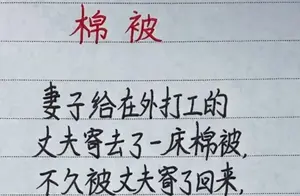 棉被
妻子给在外打工的
丈夫寄去了一床棉被,
不久被丈夫寄了回来,